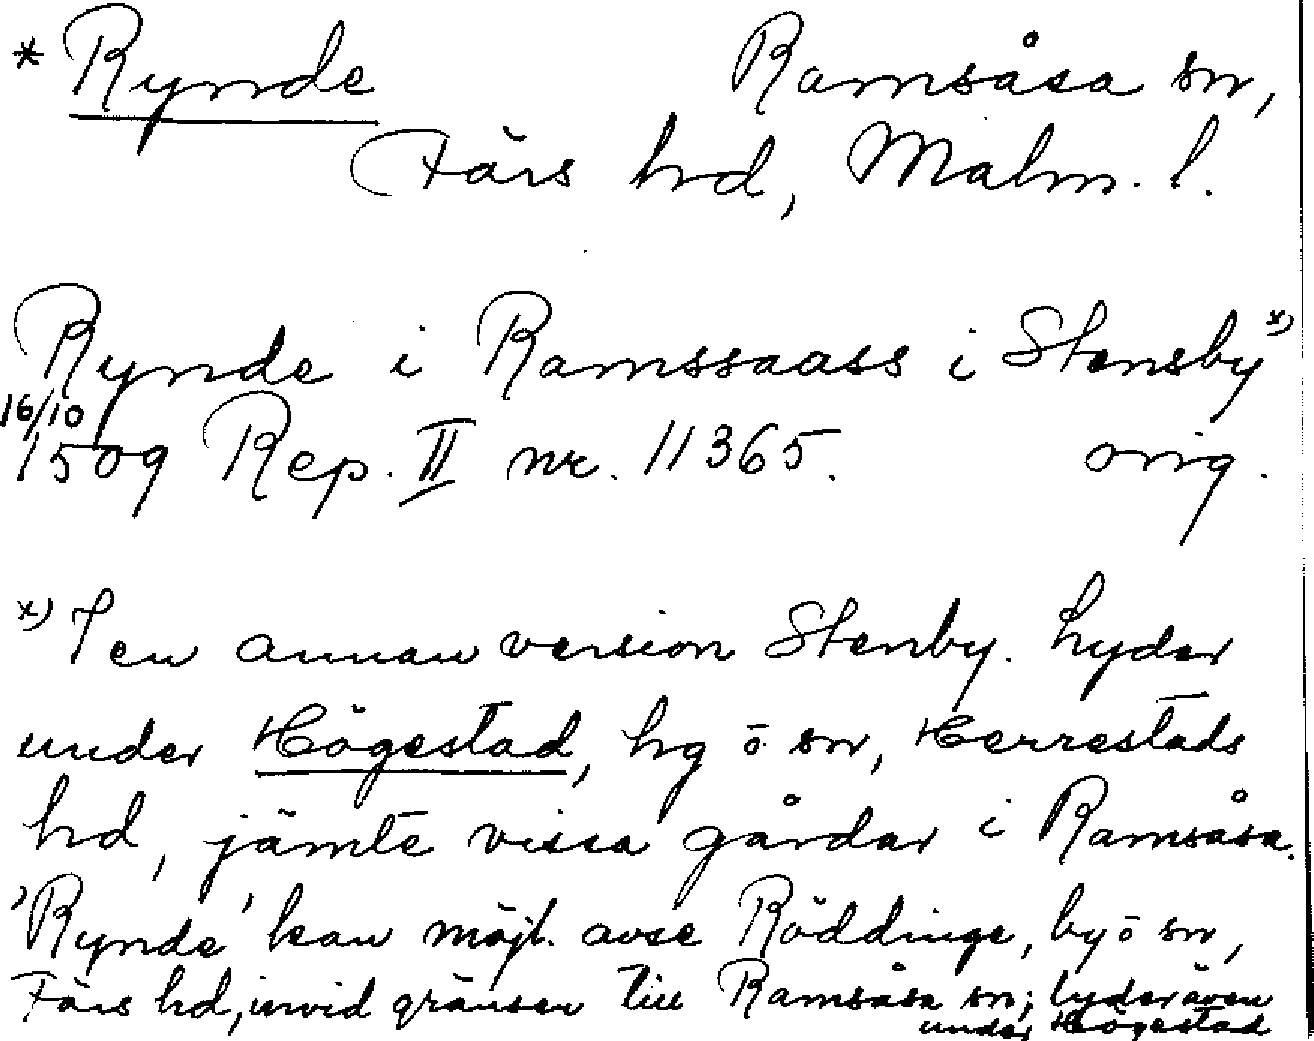 * Rynde Ramsåsa sn,
Färs hd, Malm. l.
Rynde i Ramssaass i Stensby x)
16/10
1509 Rep. II nr. 11365. orig.
x) I en annan version Stenby. Lyder
under Högestad, hg ō sn, Herrestads
hd, jämte vissa gårdar i Ramsåsa.
'Rynde' kan möjl. avse Röddinge, by ō sn,
Färs hd, invid gränsen till Ramsåsa sn; lyder även
under Högestad